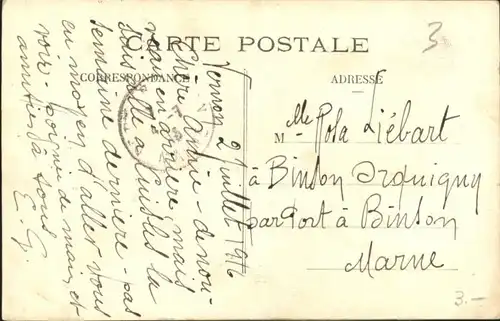 CARTE POSTALE
CORRESPONDANCE
ADRESSE
3
Vernon 2 juillet 1916
Chère Amie - de nou-
veau en arrière, mais
suis allé à
semaine dernière - pas
eu moyen d'aller vous
voir - poignée de main, et
amitiés à tous
E. G.
M lle Rosa Liébart
à Binson Orquigny
par Port à Binson
Marne
3.-